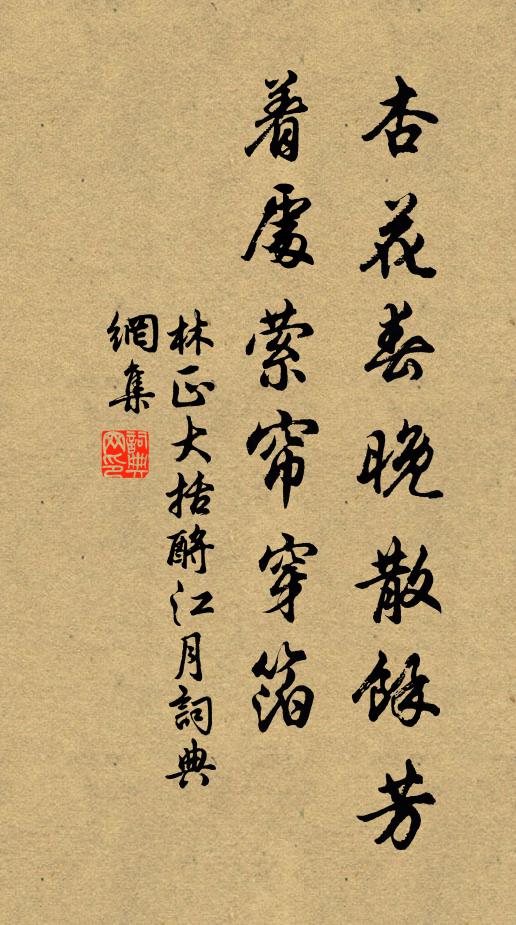 杏花春晚散餘芳
着處縈帘穿箔
林正大括酹江月詞典
網集
詞典網印